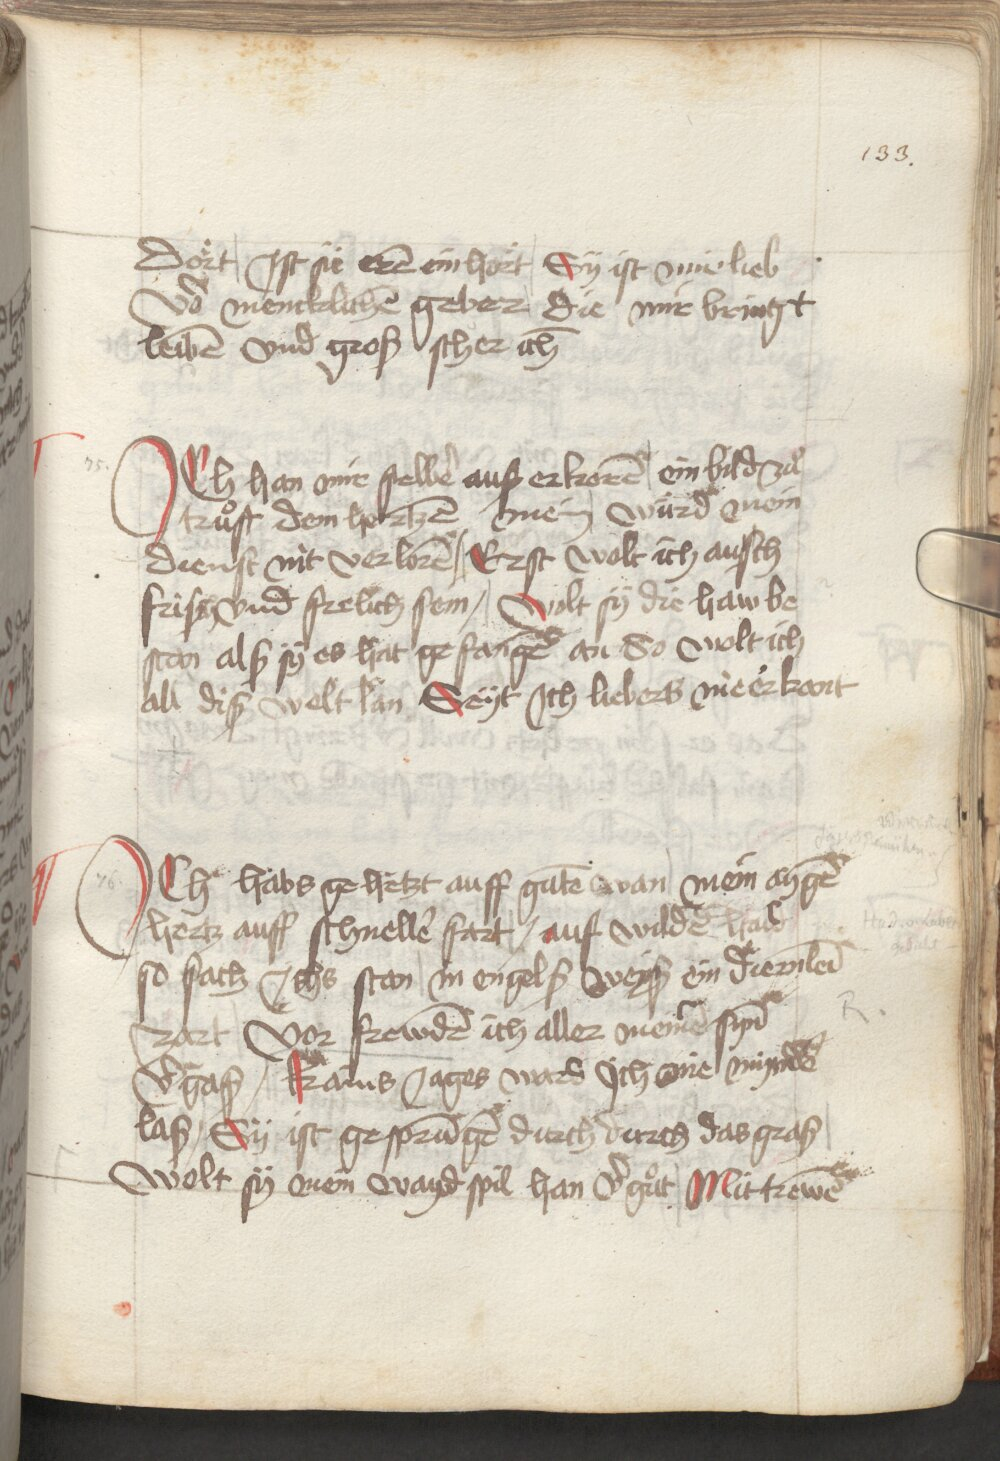 133.
Dört / Ist sie erē ein hört / Sy ist mir lieb
Võ mencklichē geber die mir bringt
leibē vnd groß scher ich
75.
Ich han mir selbē auß erkorē ein bild zů
trůst dem hertzē mein würd mein
dienst nit verlorē / Erst wolt ich ausch
frisch vnd frelich sein / Wolt sy die haw be
ston alß sy es hat gefangē an So wolt ich
all diß welt lan Seyt Ich liebers nie erkant
76.
Ich habs gehetzt auff gutē wan mein aygē
hertz auff schnellē fart / auf wildē
so sach Ichs ston in engelß weyß ein diernlein
zart Vor frewdē ich aller meinē synē
v̄gaß / Kains Jages ward Ich nie mynde
laß / Sy ist gesprungē durch durch das graß
Wolt sy mein wayd spil han v̄ gůt / Mit trewē
R.